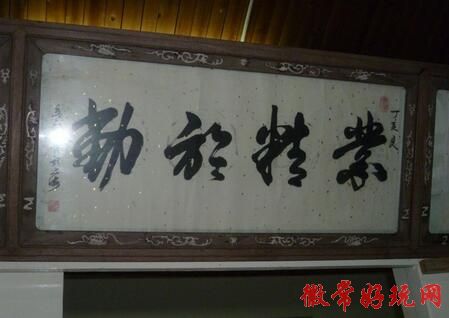 業精於勤
丁亥
徽常好玩网